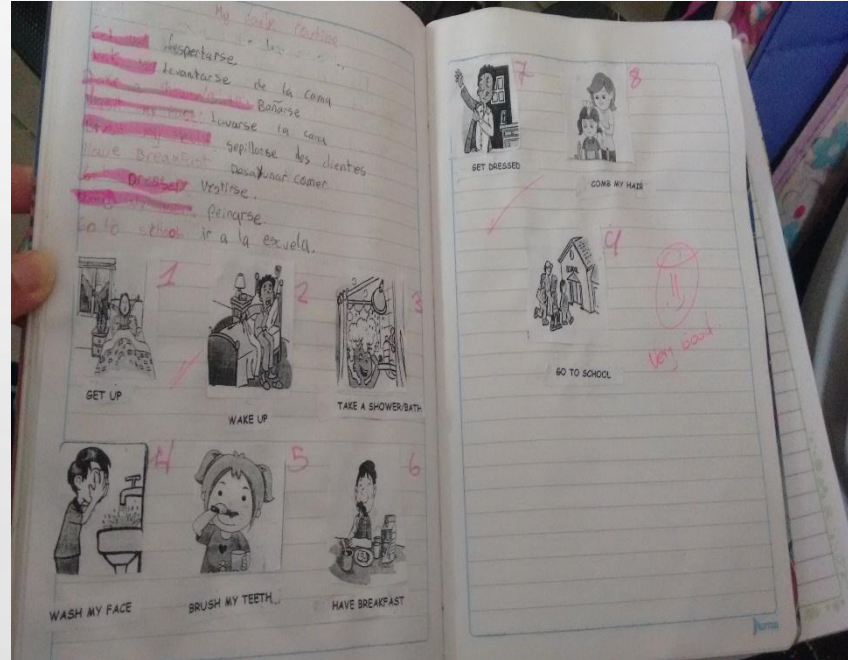 My daily routine
Get up despertarse
Wake up levantarse de la cama
Bañarse
Wash my face lavarse la cara
Brush my teeth sepillarse los dientes
Have Breakfast Desayunar comer
Get Dressed Vestirse.
Peinarse.
Go to school ir a la escuela.
1
2
3
GET UP
WAKE UP
TAKE A SHOWER/BATH
4
5
6
WASH MY FACE
BRUSH MY TEETH
HAVE BREAKFAST
7
8
GET DRESSED
COMB MY HAIR
9
GO TO SCHOOL
Very Good.
Norma